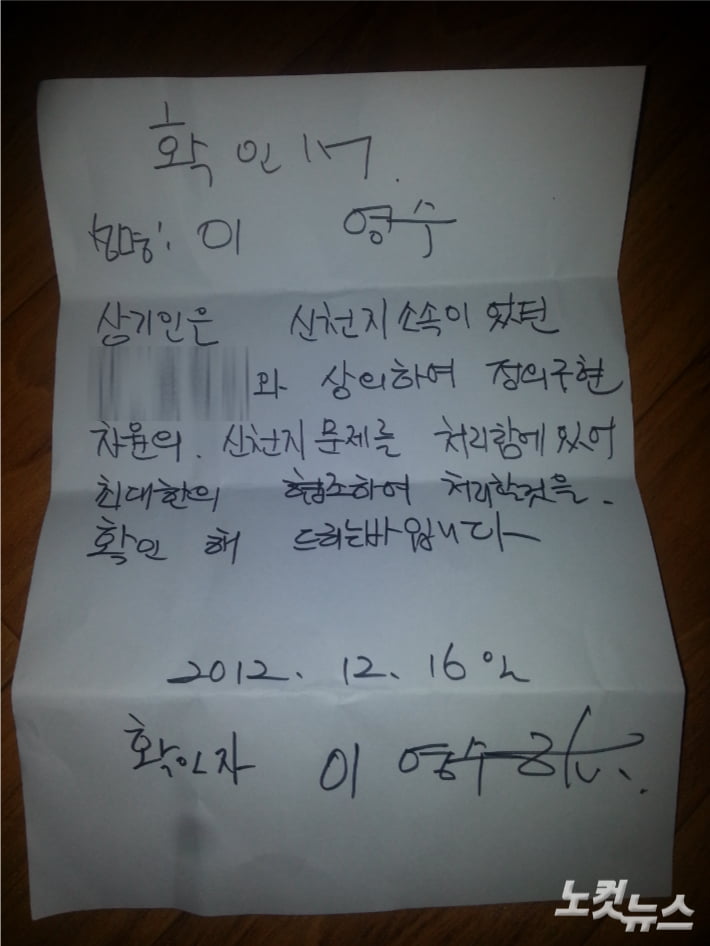 확인서.
성명: 이 영수
상기인은 신천지 소속이 았던
와 상의하여 정의구현
차원의. 신천지 문제를 처리함에 있어
최대한의 협조하여 처리할것을.
확인 해 드리는바 입니다
2012. 12. 16일
확인자 이 영수
노컷뉴스